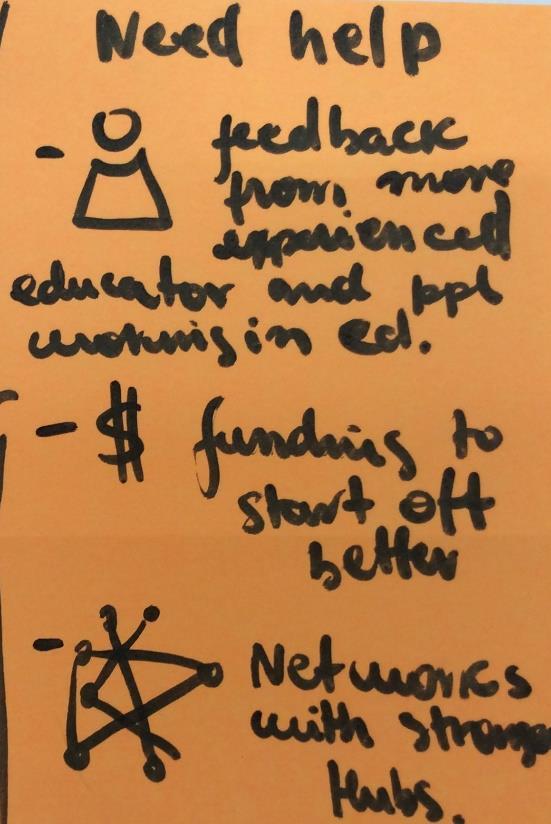 Need help
- feedback
from more
experienced
educator and ppl
working in ed.
- $ funding to
start off
better
- Networks
with stronger
Hubs.